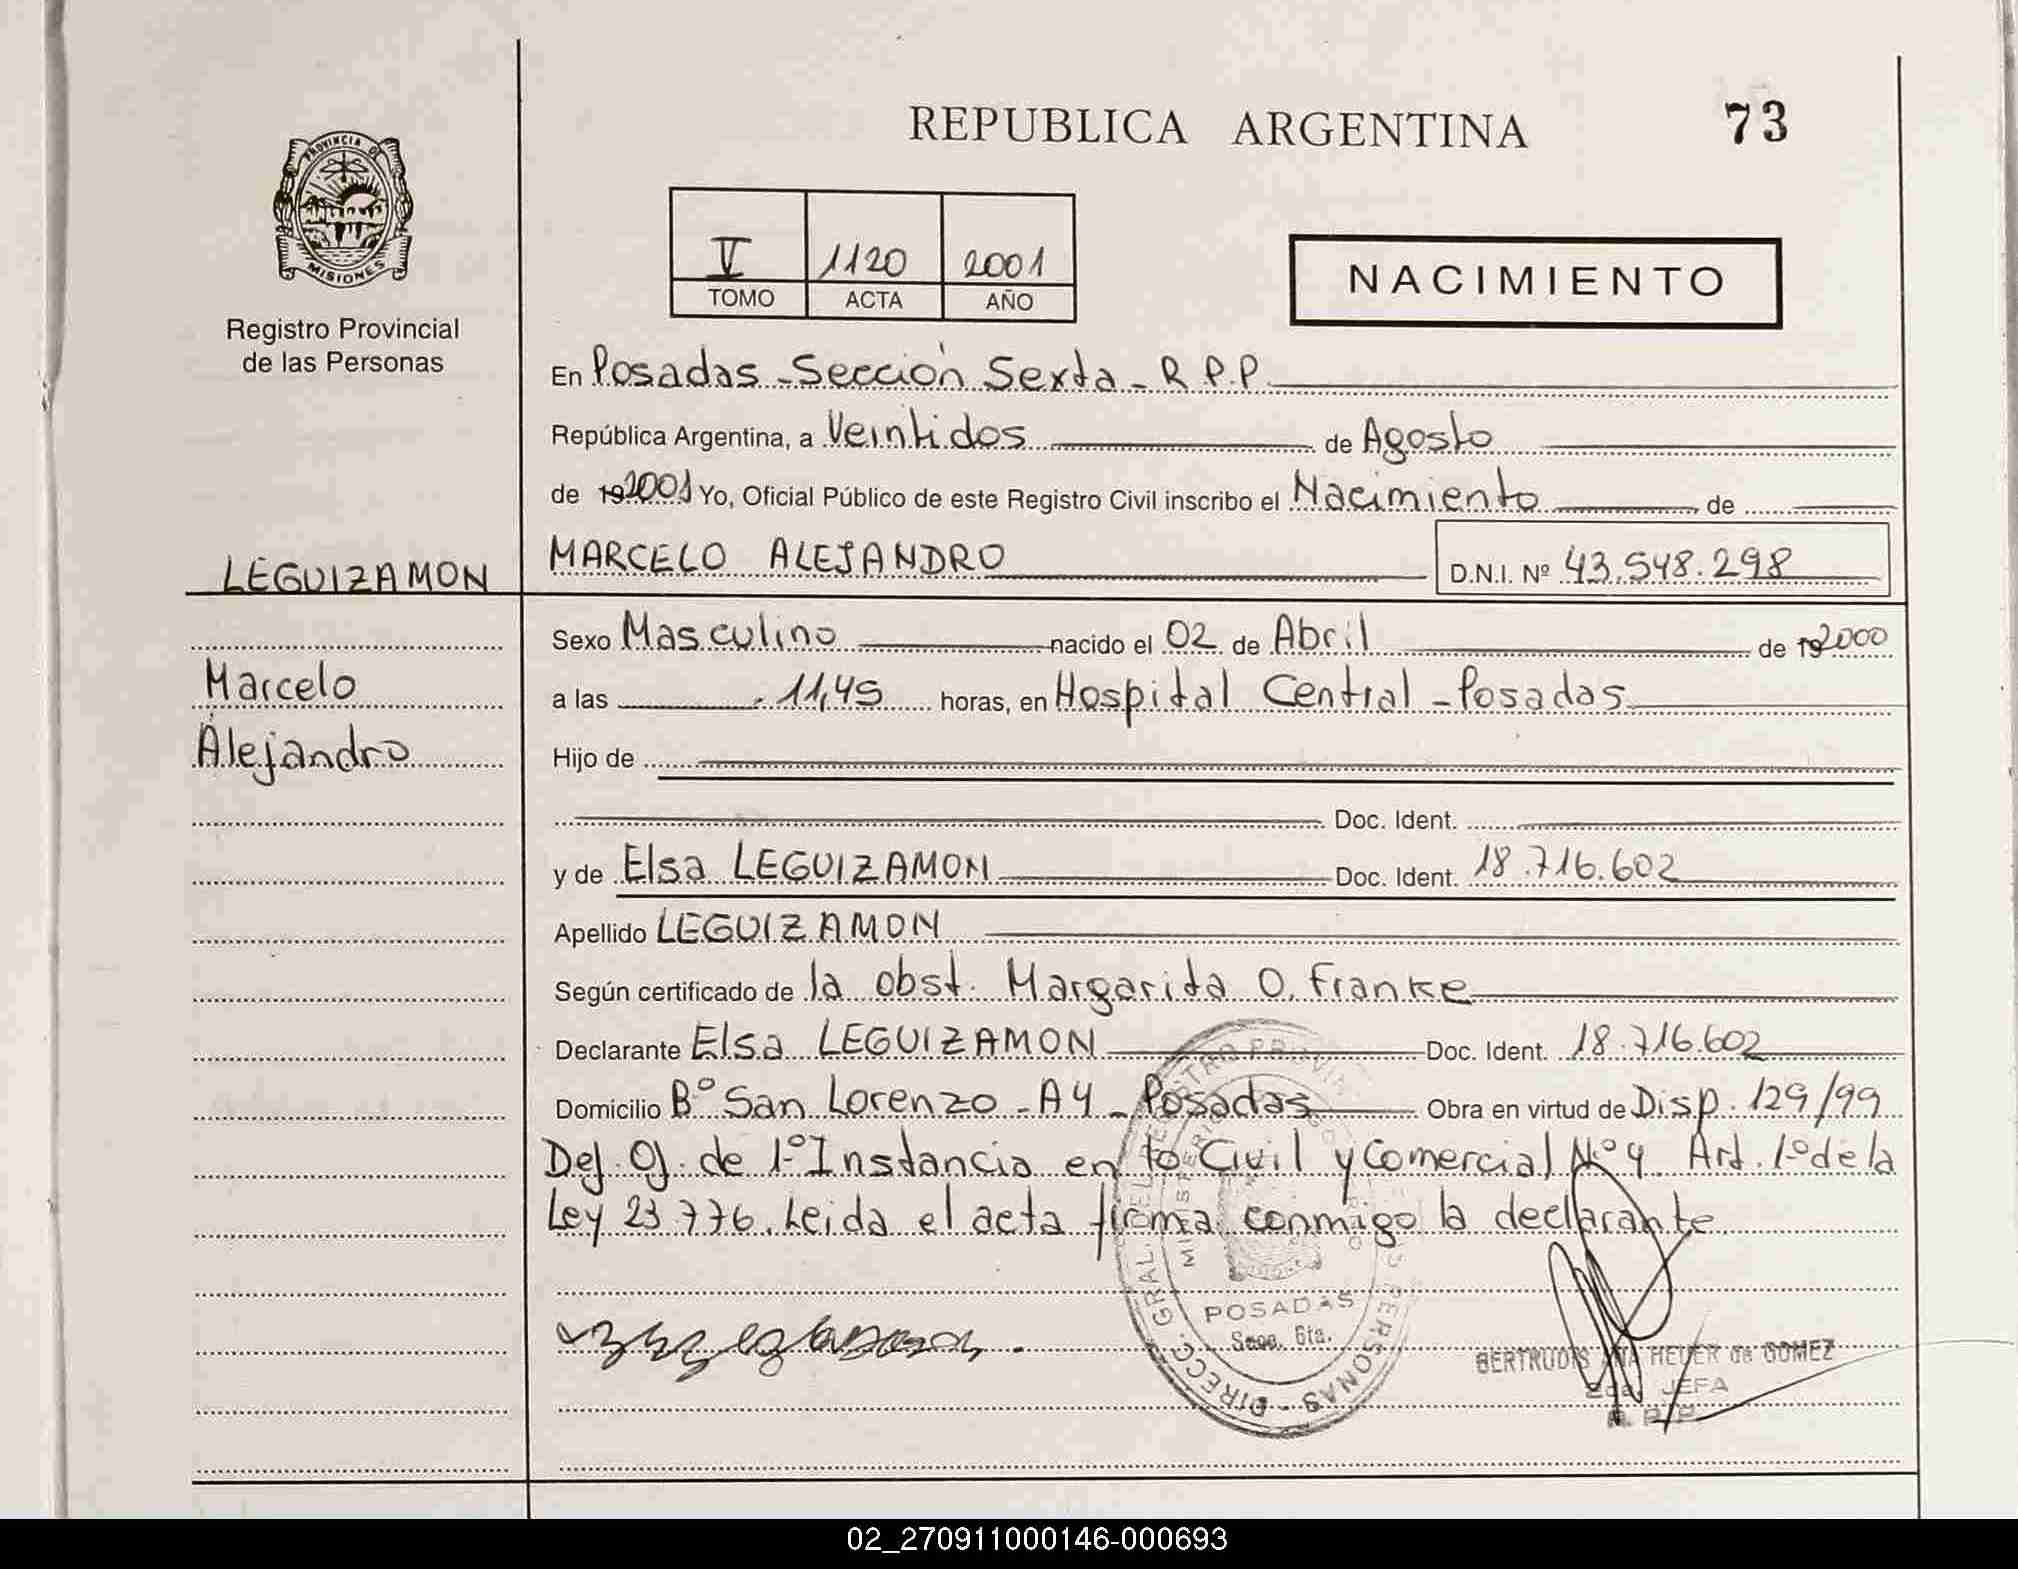 REPUBLICA ARGENTINA
73
PROVINCIA DE
MISIONES
Registro Provincial
de las Personas
V 1120 2001
TOMO ACTA AÑO
NACIMIENTO
En Posadas - Sección Sexta - R.P.P.
República Argentina, a Veintidos de Agosto
de 192001 Yo, Oficial Público de este Registro Civil inscribo el Nacimiento de
LEGUIZAMON
MARCELO ALEJANDRO D.N.I. Nº 43.548.298
Sexo Masculino nacido el 02 de Abril de 192000
Marcelo
Alejandro
a las 11,45 horas, en Hospital Central - Posadas
Hijo de
Doc. Ident.
y de Elsa LEGUIZAMON Doc. Ident. 18.716.602
Apellido LEGUIZAMON
Según certificado de la obst. Margarita O. Franke
Declarante Elsa LEGUIZAMON Doc. Ident. 18.716.602
Domicilio Bº San Lorenzo - A4 - Posadas Obra en virtud de Disp. 129/99
Def. Of. de 1º Instancia en lo Civil y Comercial Nº 4 Art. 1º de la
Ley 23.776. Leida el acta firma conmigo la declarante
POSADAS
Secc. 6ta.
GERTRUDIS ANA HEUER de GOMEZ
2da. JEFA
R. P. P.
02_270911000146-000693